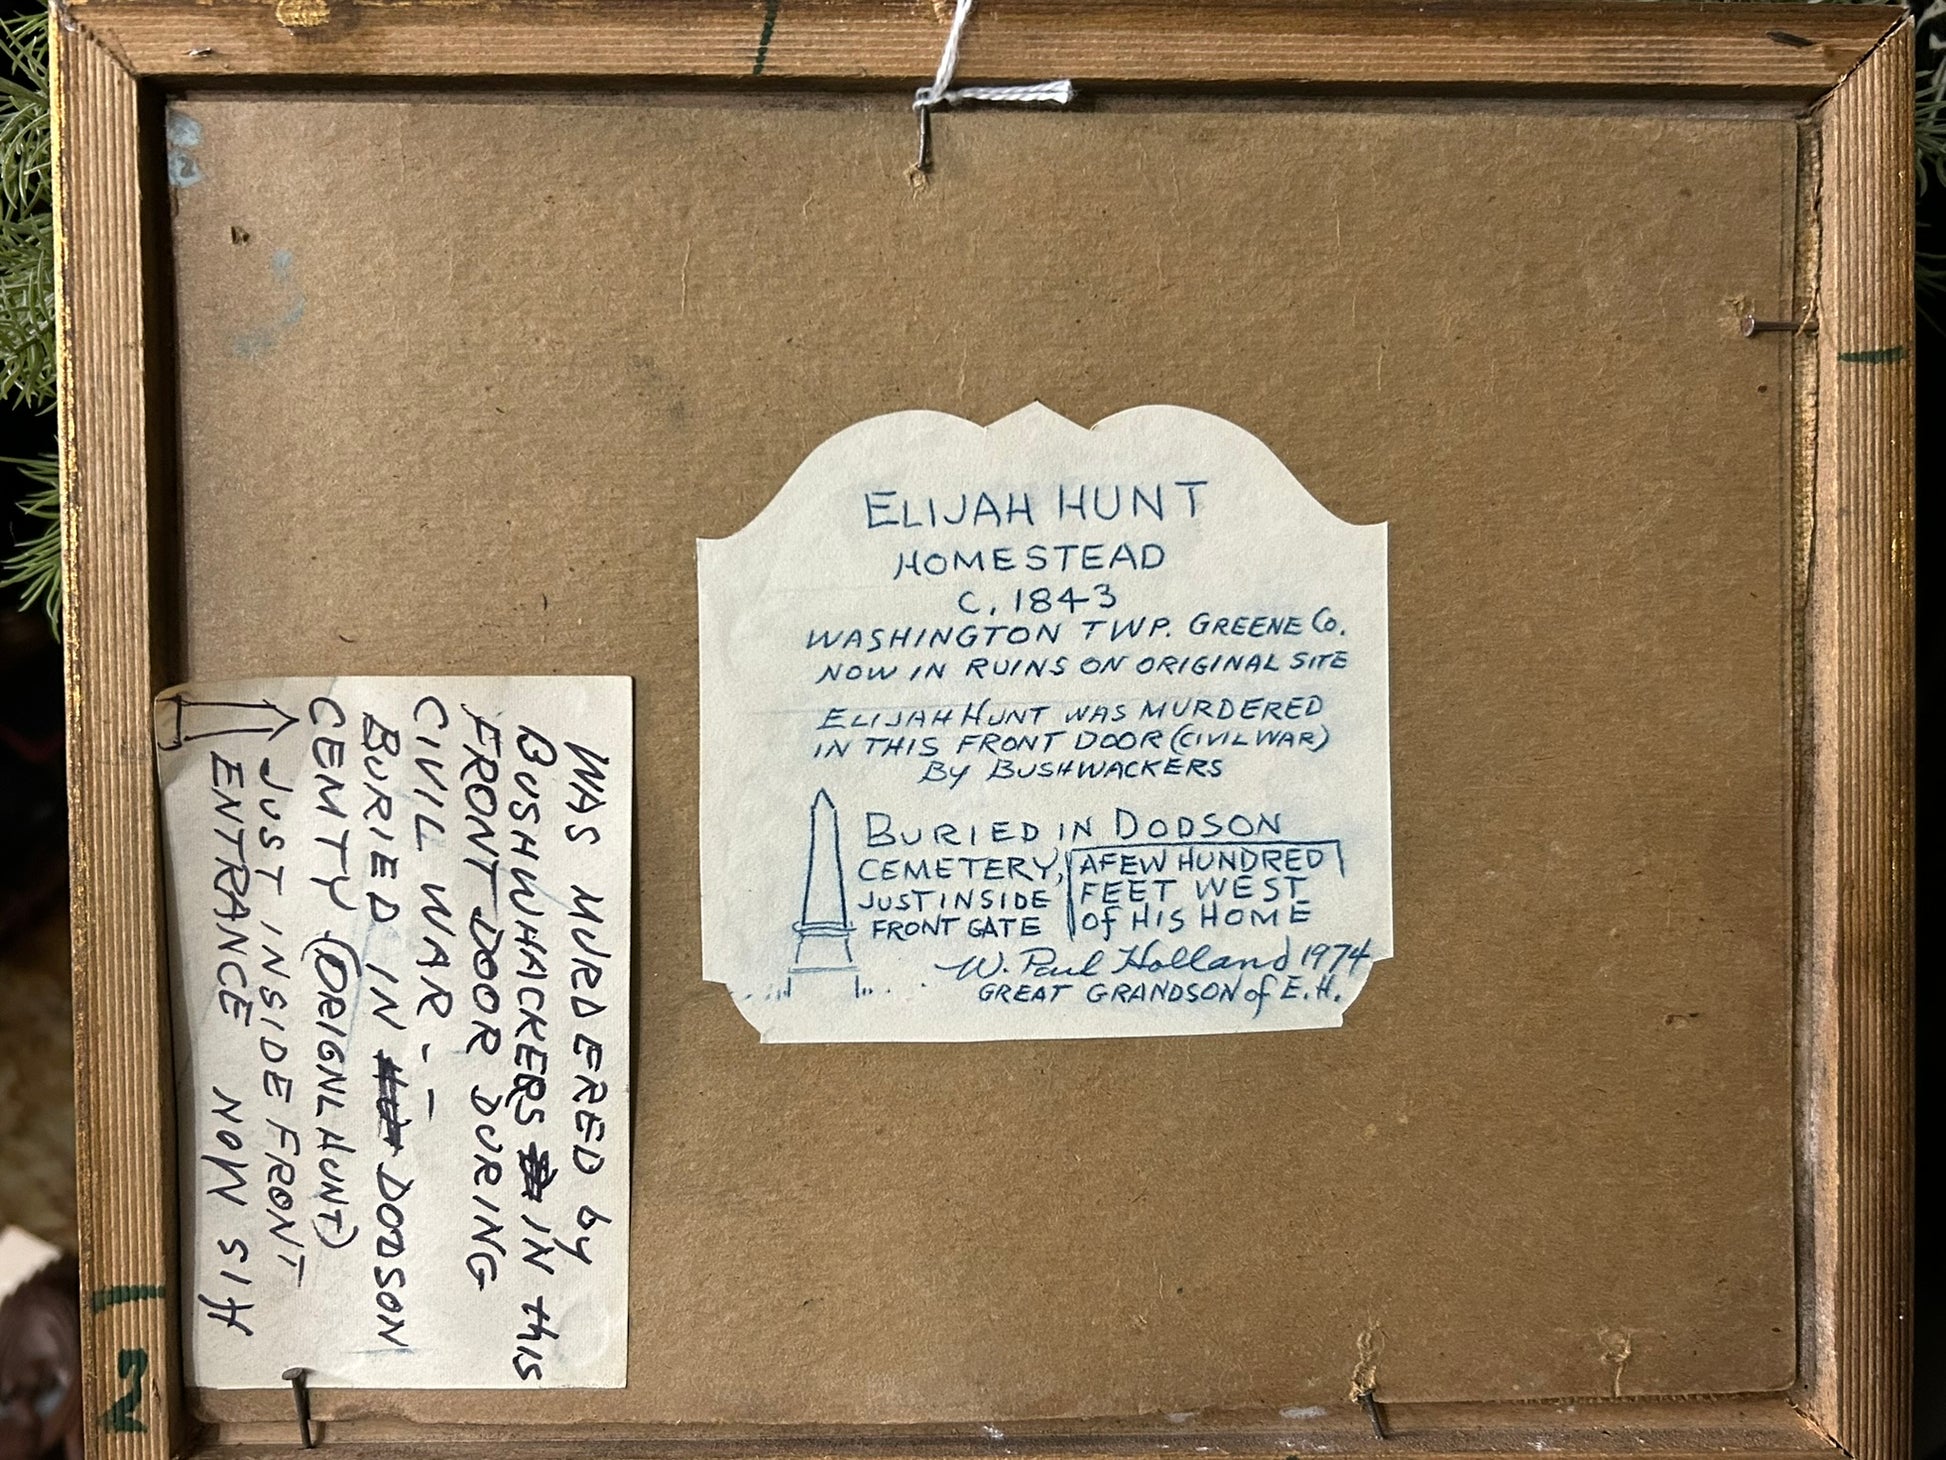 ELIJAH HUNT
HOMESTEAD
C. 1843
WASHINGTON TWP. GREENE Co.
NOW IN RUINS ON ORIGINAL SITE
ELIJAH HUNT WAS MURDERED
IN THIS FRONT DOOR (CIVIL WAR)
By BUSHWACKERS
BURIED IN DODSON
CEMETERY, A FEW HUNDRED
JUST INSIDE FEET WEST
FRONT GATE of HIS HOME
W. Paul Holland 1974
GREAT GRANDSON of E. H.
WAS MURDERED by
BUSHWHACKERS IN this
FRONT DOOR DURING
CIVIL WAR - -
BURIED IN DODSON
CEMTY (ORIGNL HUNT)
JUST INSIDE FRONT
ENTRANCE NOW SIH
2